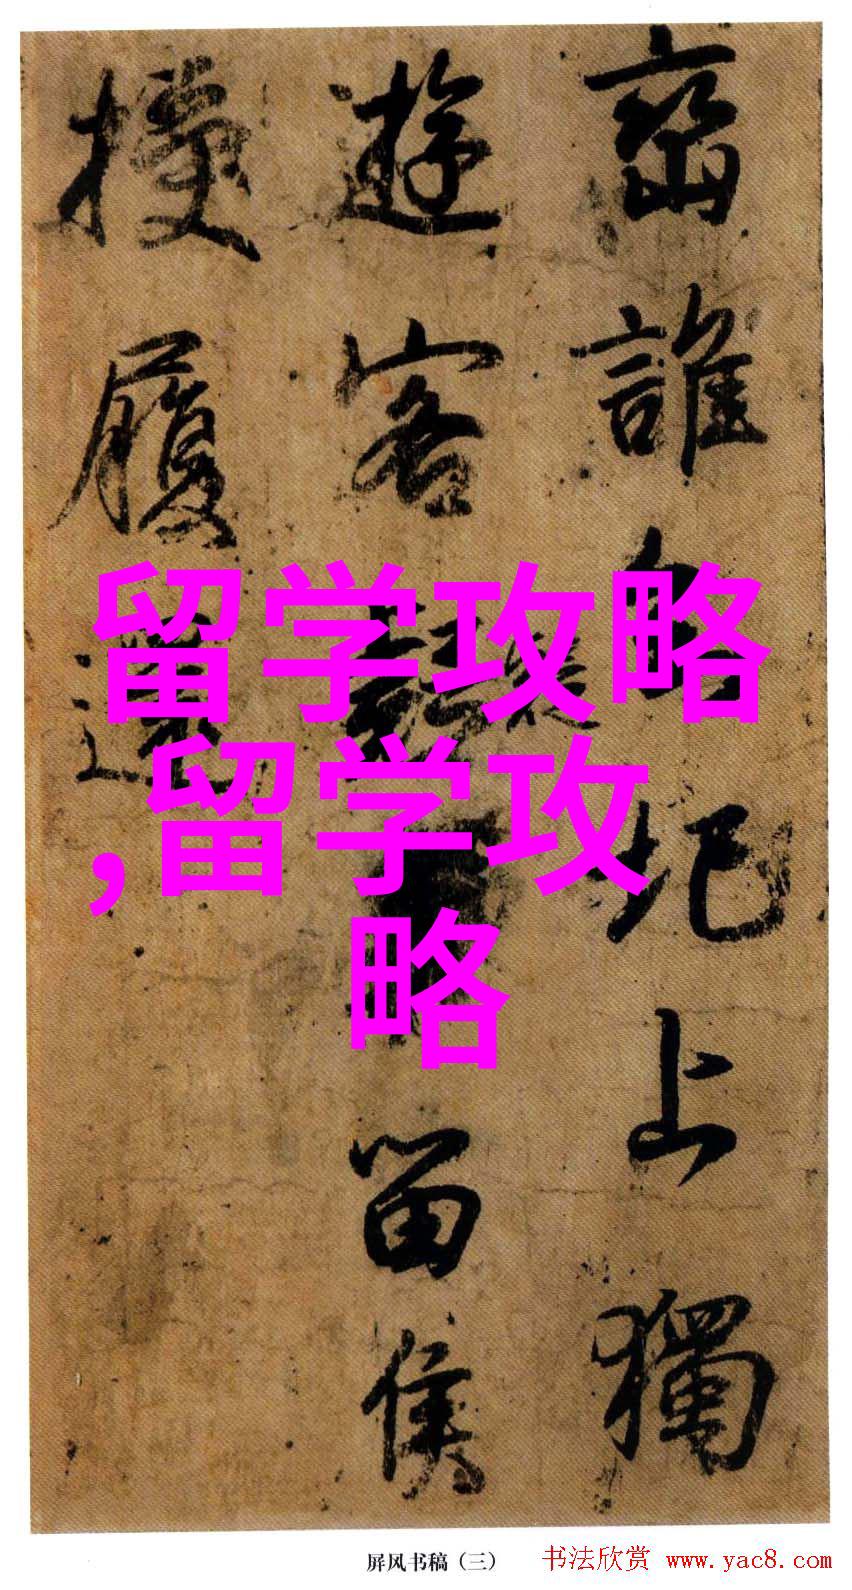 峦誰圯上獨
遊客留侯
履還
留学攻略
,留学攻
略
屏风书稿（三） 书法欣赏 www.yac8.com